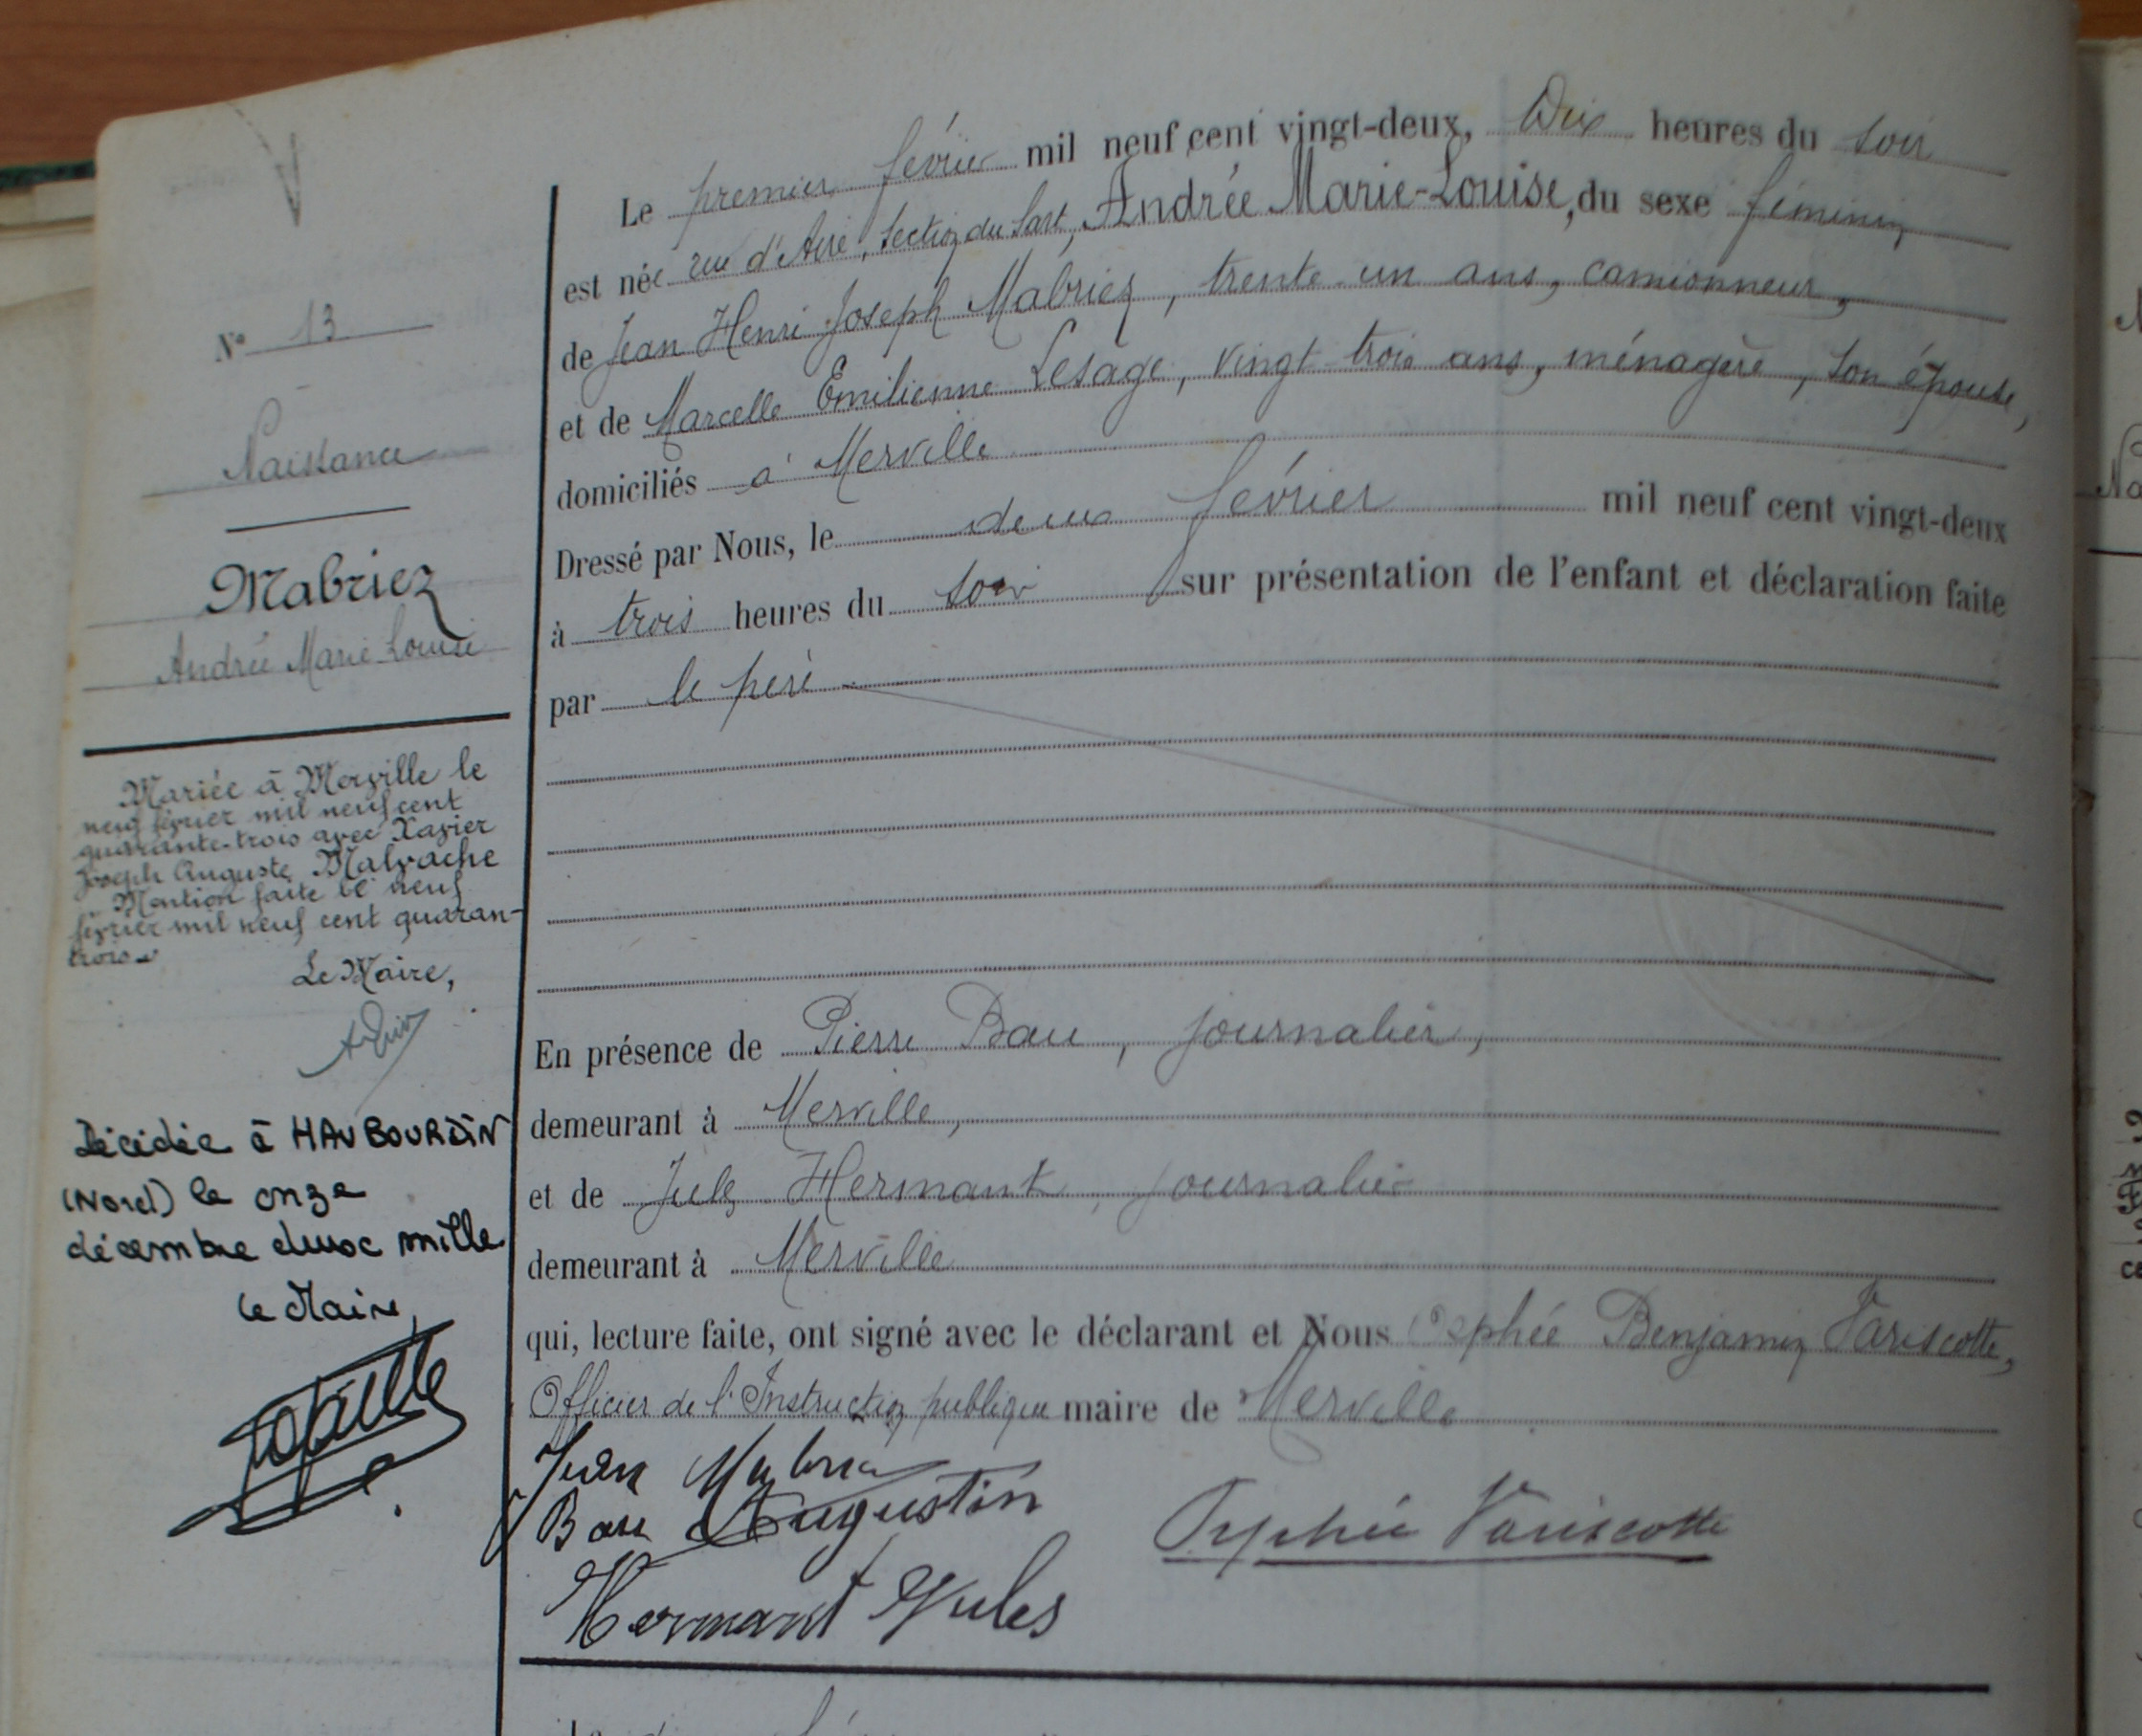 N° 13
Naissance
Mabriez
Andrée Marie Louise
Mariée à Merville le
neuf février mil neuf cent
quarante-trois avec Xavier
Joseph Auguste Malvache
Mention faite le neuf
février mil neuf cent quaran-
trois
Le Maire,
Décédée à HAUBOURDIN
(Nord) le onze
décembre deux mille
Le Maire,
Le premier février mil neuf cent vingt-deux, Dix heures du soir
est née rue d'Aire, section du Sart, Andrée Marie-Louise, du sexe féminin
de Jean Henri Joseph Mabriez, trente-un ans, camionneur,
et de Marcelle Emilienne Lesage, vingt trois ans, ménagère, son épouse,
domiciliés à Merville
Dressé par Nous, le deux février mil neuf cent vingt-deux
à trois heures du soir sur présentation de l'enfant et déclaration faite
par le père
En présence de Pierre Bau, journalier,
demeurant à Merville,
et de Jules Hermant, journalier
demeurant à Merville
qui, lecture faite, ont signé avec le déclarant et Nous Orphée Benjamin Variscotte,
Officier de l'Instruction publique maire de Merville
Jean Mabriez
Bau Augustin
Orphée Variscotte
Hermant Jules